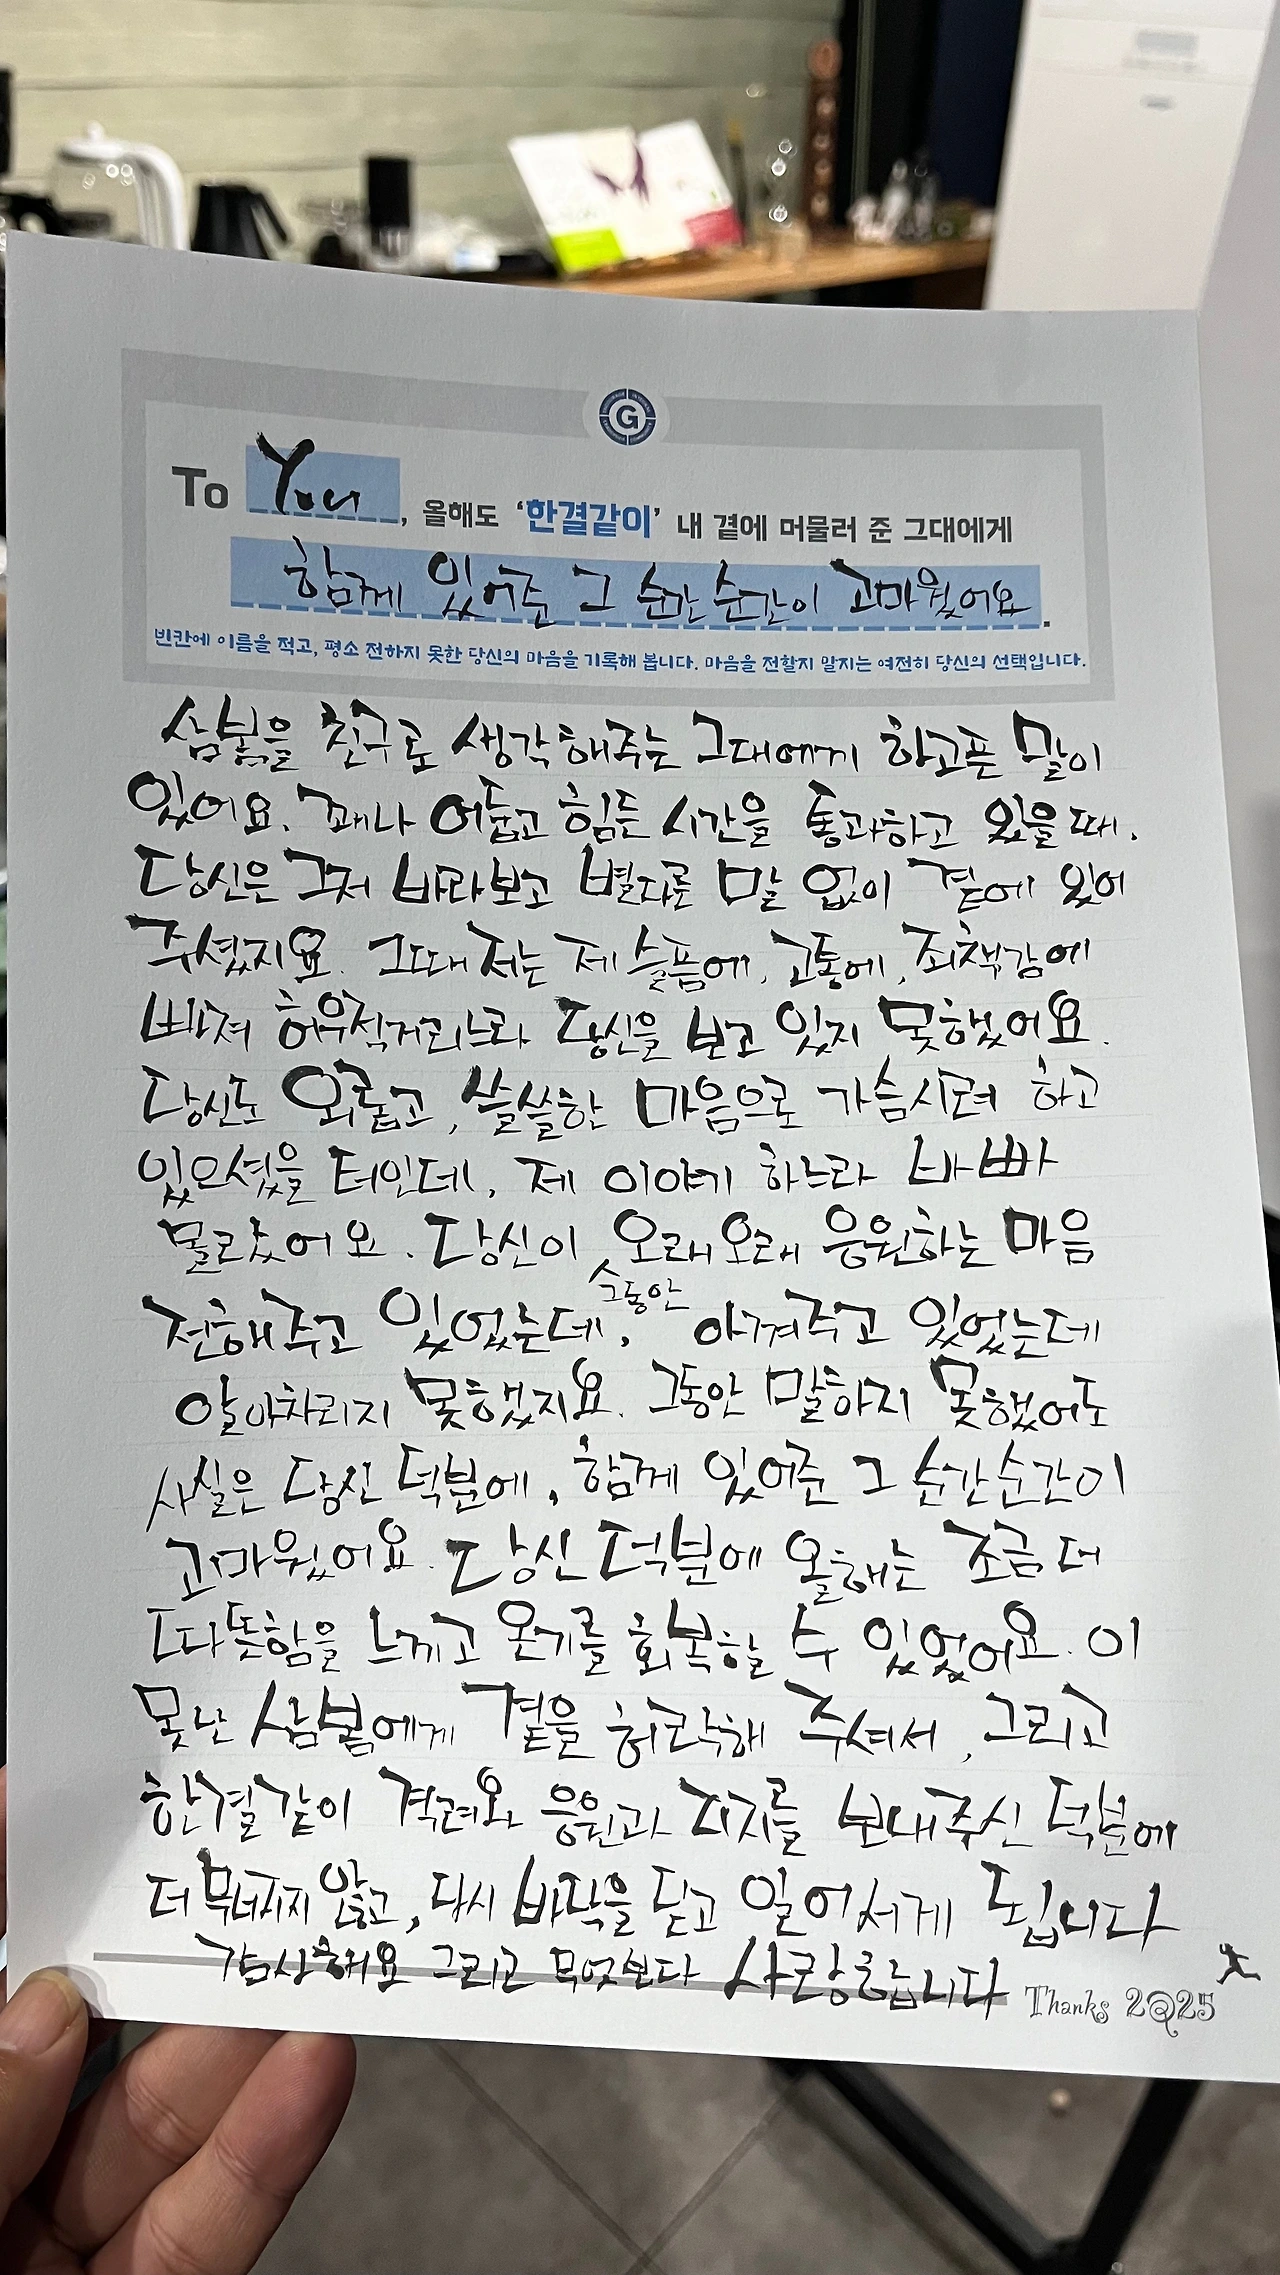 G
To You, 올해도 '한결같이' 내 곁에 머물러 준 그대에게
함께 있어준 그 순간순간이 고마웠어요.
빈칸에 이름을 적고, 평소 전하지 못한 당신의 마음을 기록해 봅니다. 마음을 전할지 말지는 여전히 당신의 선택입니다.
삼붉을 친구로 생각해주는 그대에게 하고픈 말이
있어요. 꽤나 어둡고 힘든 시간을 통과하고 있을 때.
당신은 그저 바라보고 별다른 말 없이 곁에 있어
주셨지요. 그때 저는 제 슬픔에, 고통에, 죄책감에
빠져 허우적거리느라 당신을 보고 있지 못했어요.
당신도 외롭고, 쓸쓸한 마음으로 가슴시려 하고
있으셨을 터인데, 제 이야기 하느라 바빠
몰랐어요. 당신이 오래오래 응원하는 마음
전해주고 있었는데, 그동안 아껴주고 있었는데
알아차리지 못했지요. 그동안 말하지 못했어도
사실은 당신 덕분에, 함께 있어준 그 순간순간이
고마웠어요. 당신 덕분에 올해는 조금 더
따뜻함을 느끼고 온기를 회복할 수 있었어요. 이
못난 삼붉에게 곁을 허락해 주셔서, 그리고
한결같이 격려와 응원과 지지를 보내주신 덕분에
더 무너지지 않고, 다시 바닥을 딛고 일어서게 됩니다
감사해요 그리고 무엇보다 사랑합니다
Thanks 2@25